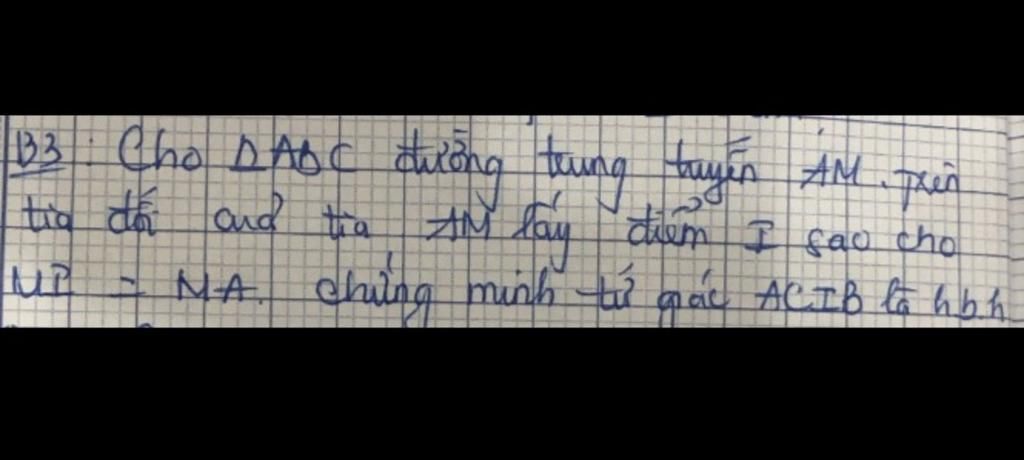 B3: Cho ΔABC đường trung tuyến AM. Trên
tia đối của tia AM lấy điểm I sao cho
MI = MA. chứng minh tứ giác ACIB là hbh